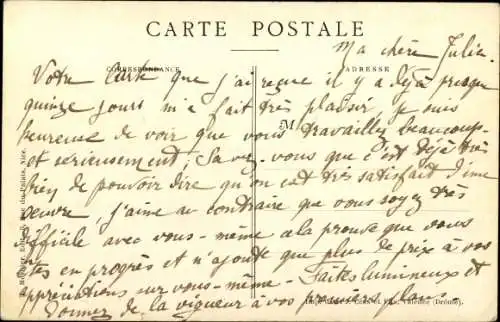 CARTE POSTALE
Ma chère Julia.
CORRESPONDANCE
ADRESSE
Votre carte que j'ai reçue il y a déjà presque
quinze jours m'a fait très plaisir, je suis
heureuse de voir que vous travaillez beaucoup
et sérieusement; Savez-vous que c'est déjà très
M
bien de pouvoir dire qu'on est très satisfait d'une
oeuvre, j'aime au contraire que vous soyez très
difficile avec vous-même cela prouve que vous
êtes en progrès et n'ajoute que plus de prix à vos
appréciations sur vous-même. Faites lumineux et
donnez de la vigueur à vos premiers plans.